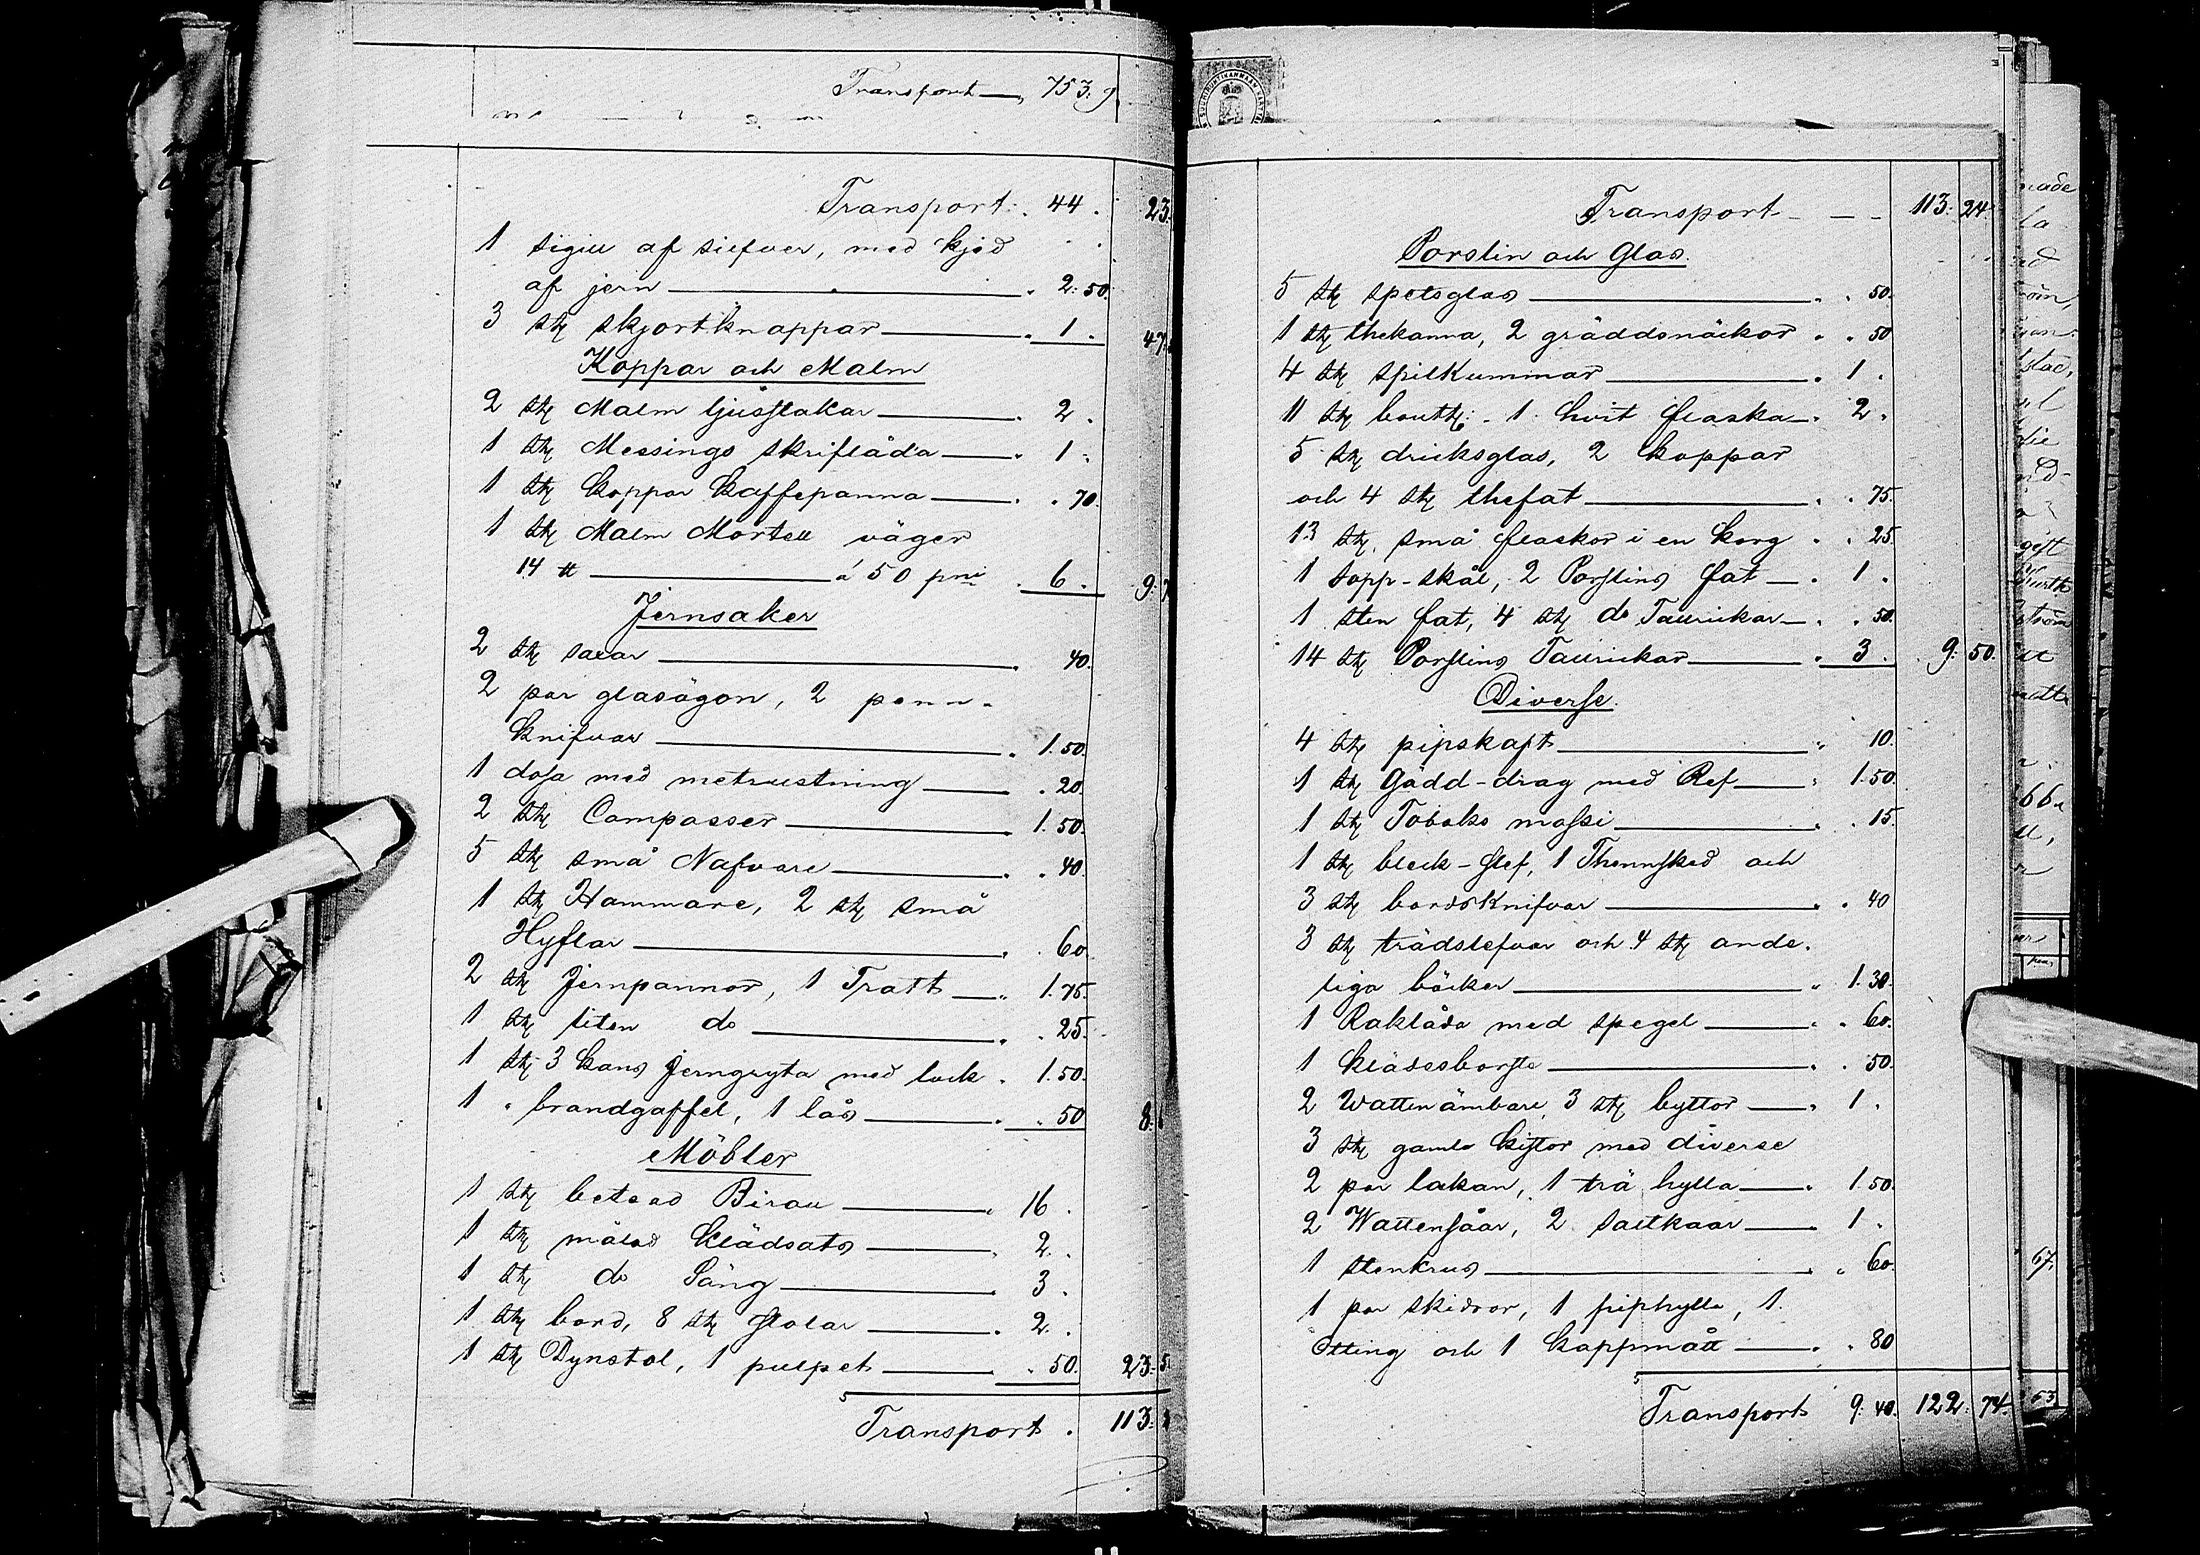 Transport 753. 9
Transport. 44. 23.
1 sigill af silfver, med kjed
af jern 2. 50.
3 stk skjortknappar 1. 47.
Koppar och Malm
2 stk Malm ljusstakar 2.
1 stk Messings skriflåda 1.
1 stk Koppar Kaffepanna . 70.
1 stk Malm Mortell väger
14 ℔ á 50 pni 6. 9. 7
Jernsaker
2 stk saxar 40.
2 par glasögon, 2 penn-
knifvar 1. 50.
1 dosa med metrustning . 20.
2 stk Compasser 1. 50.
5 stk små Nafvare . 40.
1 stk Hammare, 2 stk små
Hyflar . 60.
2 stk Jernpannor, 1 Tratt 1. 75.
1 stk liten do . 25.
1 stk 3 kans Jerngryta med lock . 1. 50.
1 " brandgaffel, 1 lås . 50 8.
Möbler
1 stk betsad Birou 16.
1 stk målad Klädsats 2.
1 stk do Säng 3.
1 stk bord, 8 stk stolar 2.
1 stk Dynstol, 1 pulpet . 50. 23. 5
Transport . 113.
Transport 113. 24
Porslin och Glas.
5 stk spetsglas . 50.
1 stk thekanna, 2 gräddsnäckor . 50
4 stk spilkummar . 1.
11 stk boutlr. 1 hvit flaska . 2.
5 stk dricksglas, 2 koppar
och 4 stk thefat . 75.
13 stk. små flaskor i en korg . 25.
1 sopp-skål, 2 Porslins fat . 1.
1 sten fat, 4 stk do Taurickar . 50.
14 stk Porslins Taurickar . 3. 9. 50.
Diverse.
4 stk pipskaft 10.
1 stk Gädd-drag med Ref 1. 50.
1 stk Tobaks massi . 15.
1 stk bleck-slef, 1 Thennsked och
3 stk bordsknifvar . 40
3 stk trädslefvar och 4 stk ande-
liga böcker 1. 30.
1 Raklåda med spegel . 60.
1 klädesborste . 50.
2 Wattenämbare, 3 stk byttor 1.
3 stk gamla kistor med diverse
2 par lakan, 1 trä hylla 1. 50.
2 Wattensåar, 2 saltkaar 1.
1 stenkrus . 60.
1 par skidor, 1 piphylla, 1
Otting och 1 kappmått . 80
Transport 9. 40. 122. 74.